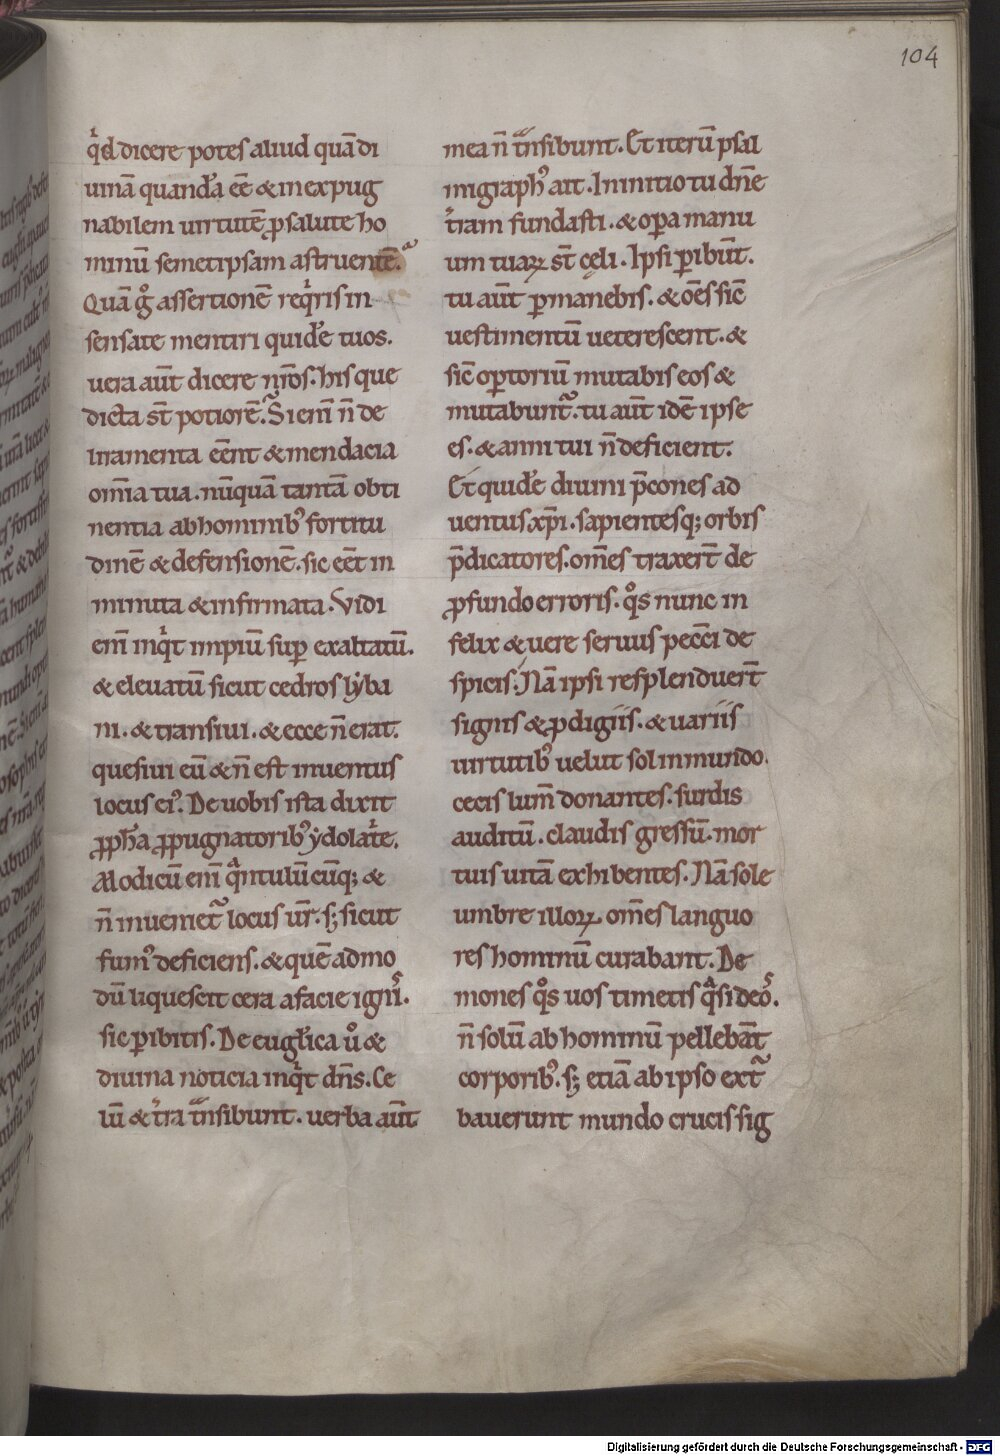 104
qͥd dicere potes aliud quā di
uinā quandā eē & inexpug
nabilem uirtutē ꝓ salute ho
minū semetipsam astruentē.
Quā gͦ assertionē reqͥris in
sensate mentiri quidē tuos.
uera aūt dicere nr̄os. his que
dicta st̄ potiorē. Si enī n̄ de
liramenta eēnt & mendacia
om̄ia tua. nūquā tantā obti
nentia ab hominibꝰ fortitu
dinē & defensionē. sic eēt in
minuta & infirmata. Vidi
enī inqͥt impiū suꝑ exaltatū.
& eleuatū sicut cedros lẏba
ni. & transiui. & ecce n̄ erat.
quesiui eū & n̄ est inuentus
locus eiꝰ. De uobis ista dixit
ꝓph̄a ꝓpugnatoribꝰ ẏdolatͥe.
Modicū enī qͣntulūcūq; &
n̄ inueniet᷑ locus ur̄. s; sicut
fumꝰ deficiens. & quē admo
dū liquescit cera a facie ignis.
sic ꝑibitis. De euglica uͦ &
diuina noticia inqͥt dn̄s. Ce
lū & tͥra tn̄sibunt. uerba aūt
mea n̄ tn̄sibunt. Et iterū psal
migraphꝰ ait. In initio tu dn̄e
tͥram fundasti. & oꝑa manu
um tuaꝝ st̄ cęli. Ipsi ꝑibūt.
tu aūt ꝑmanebis. & oēs sic̄
uestimentū ueterescent. &
sic̄ oꝑtoriū mutabis eos &
mutabunt᷑. tu aūt idē ipse
es. & anni tui n̄ deficient.
Et quidē diuini p̄cones ad
uentus xp̄i. sapientesq; orbis
p̄dicatores. om̄es traxer̄t de
ꝓfundo erroris. qͦs nunc in
felix & uere seruus pecc̄i de
spicis. Nā ipsi resplenduer̄t
signis & ꝓdigiis. & uariis
uirtutibꝰ uelut sol in mundo.
cecis lum̄ donantes. surdis
auditū. claudis gressū. mor
tuis uitā exhibentes. Nā sole
umbre illoꝝ om̄es languo
res hominū curabant. De
mones qͦs uos timetis qͣsi deos.
n̄ solū ab hominū pellebāt
corporibꝰ. s; etiā ab ipso ext᷑
bauerunt mundo crucis sig
Digitalisierung gefördert durch die Deutsche Forschungsgemeinschaft - DFG